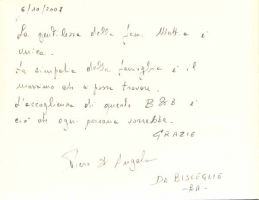 6/10/2007
La gentilezza della fam. Motta è
unica.
La simpatia della famiglia è il
massimo che si possa trovare.
L'accoglienza di questo B&B è
ciò che ogni persona vorrebbe.
GRAZIE
Piero D'Angelo
DA BISCEGLIE
-BA-